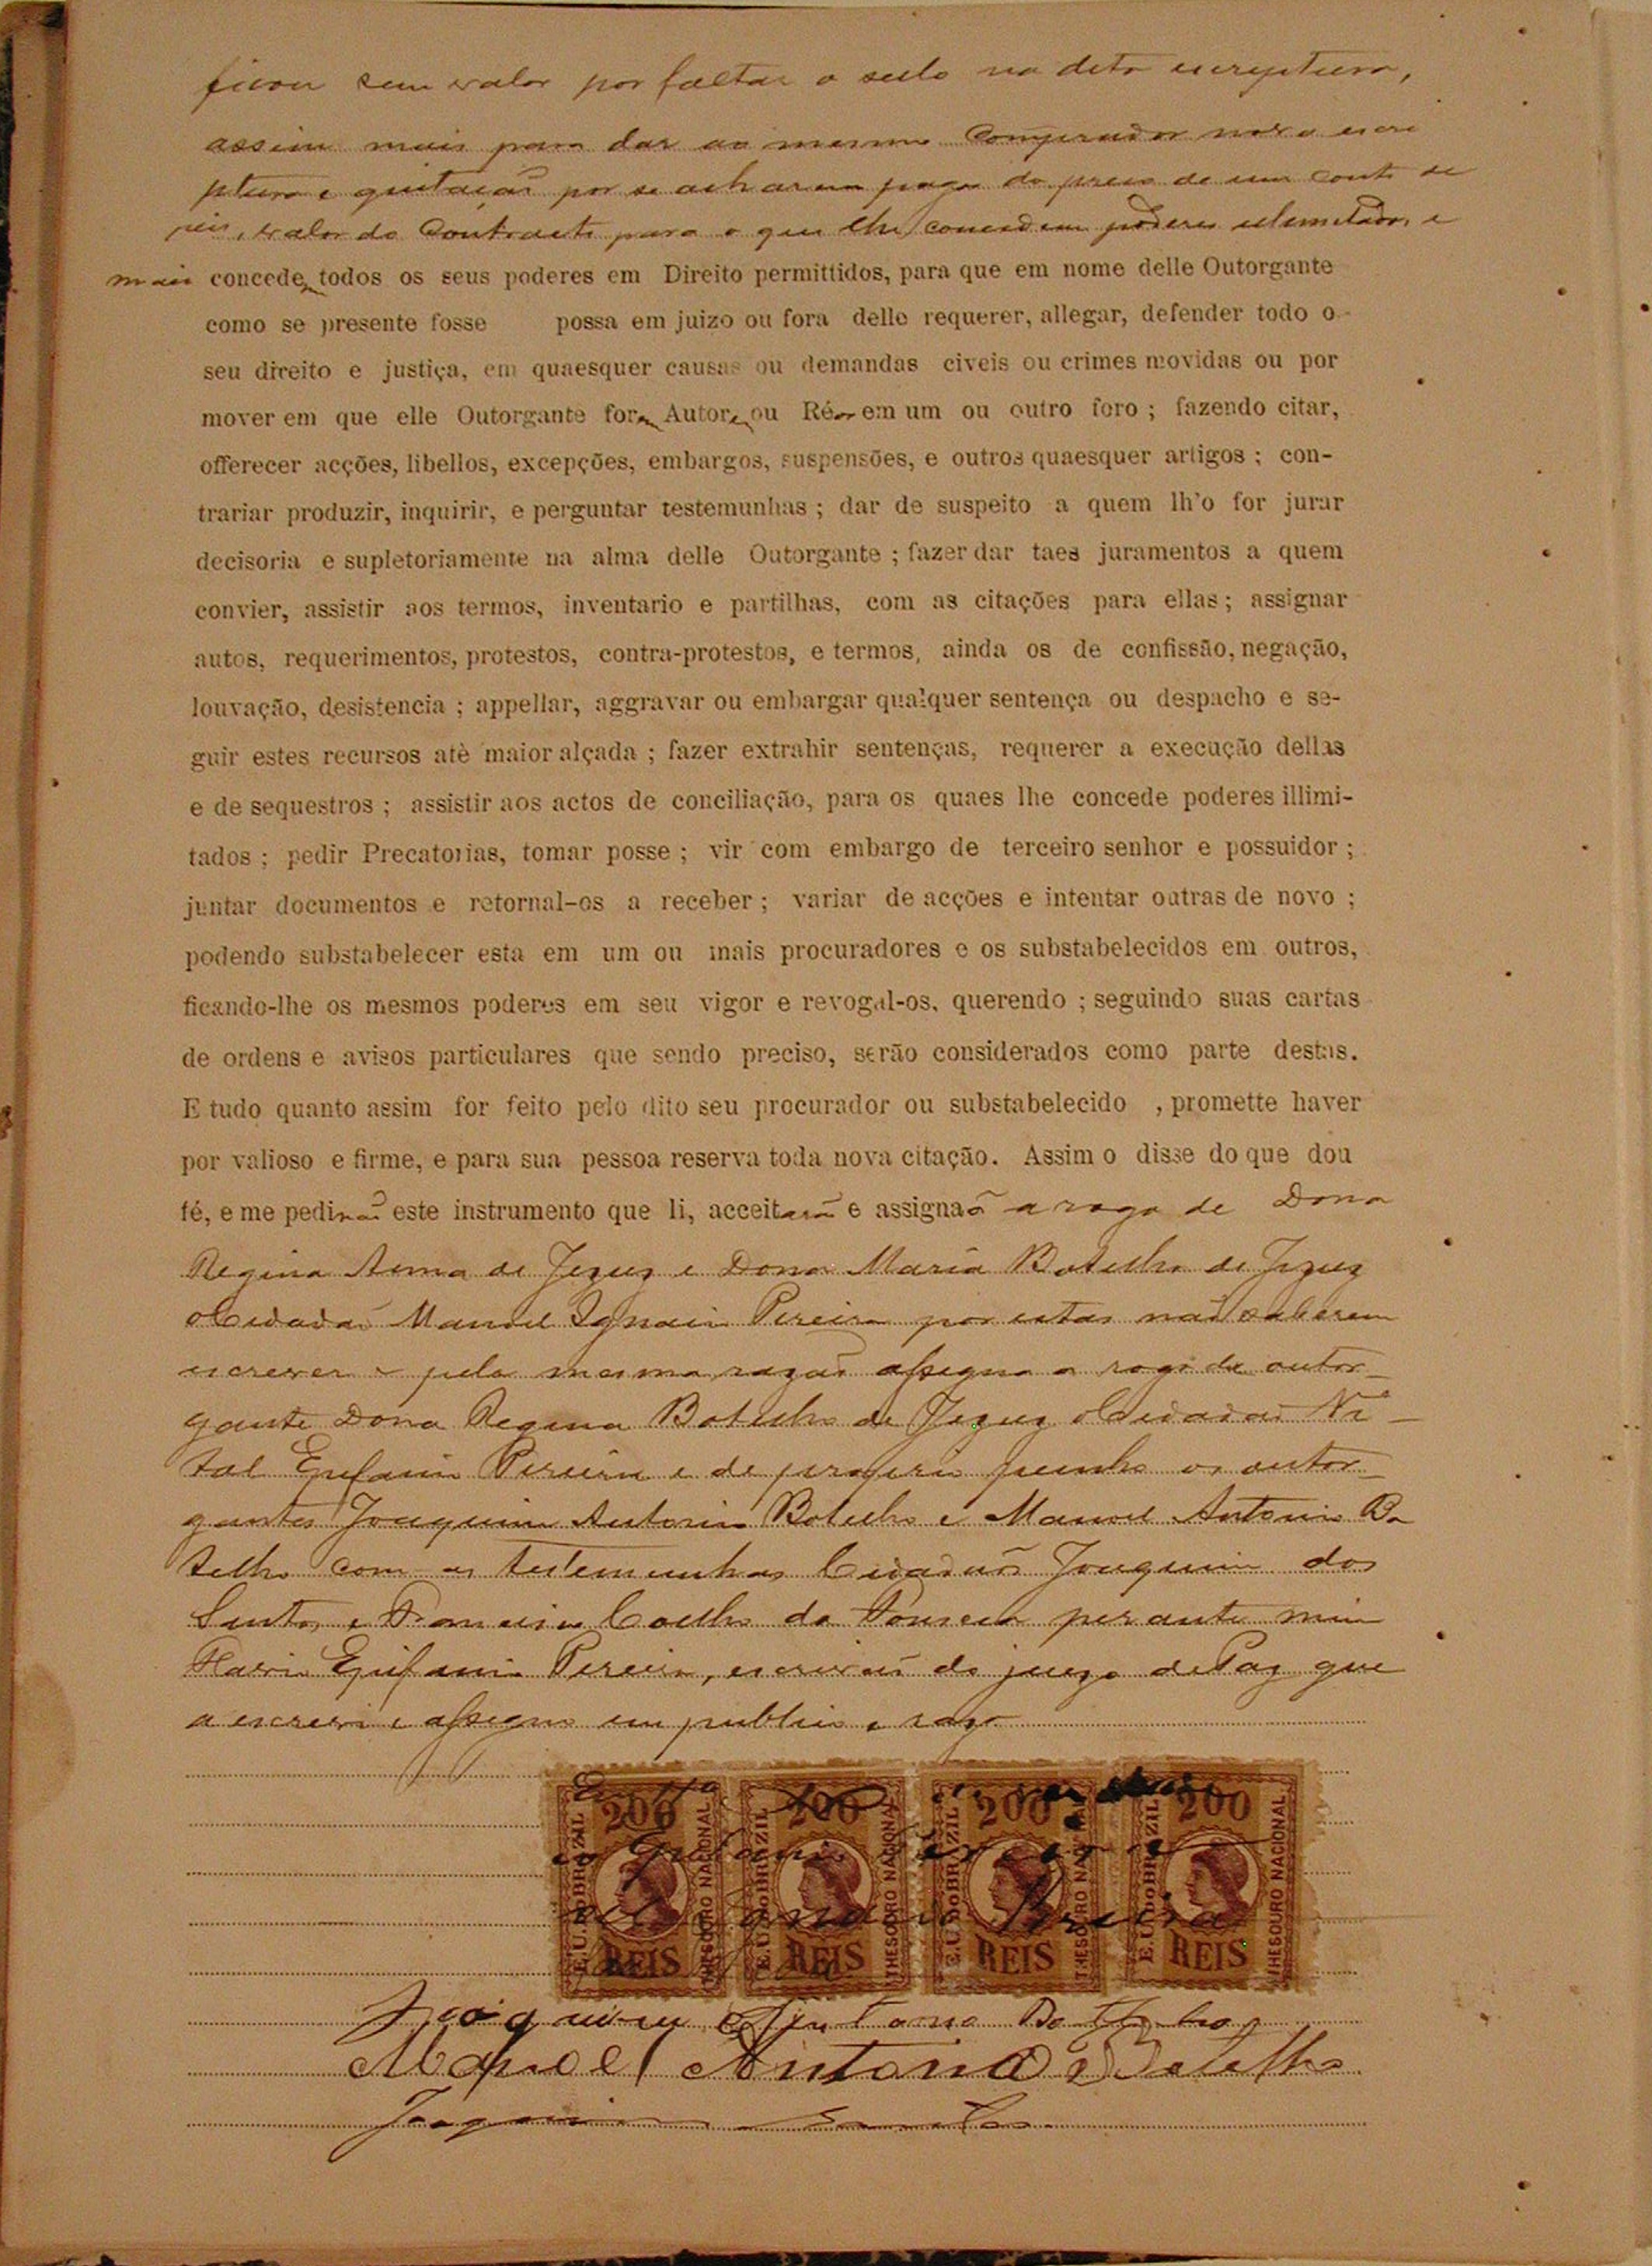 ficou sem valor por faltar o sello na dita escriptura,
assim mais para dar ao mesmo Comprador nova escri
ptura e quitaçaõ por se acharem pagos do preço de um conto de
reis, valor do Contracto para o que lhe concedem poderes illimitados, e
mais concedem todos os seus poderes em Direito permittidos, para que em nome delle Outorgante
como se presente fosse possa em juizo ou fora delle requerer, allegar, defender todo o
seu direito e justiça, em quaesquer causas ou demandas civeis ou crimes movidas ou por
mover em que elle Outorgante forem Autores ou Réos em um ou outro foro ; fazendo citar,
offerecer acções, libellos, excepções, embargos, suspensões, e outros quaesquer artigos ; con-
trariar produzir, inquirir, e perguntar testemunhas ; dar de suspeito a quem lh'o for jurar
decisoria e supletoriamente na alma delle Outorgante ; fazer dar taes juramentos a quem
convier, assistir aos termos, inventario e partilhas, com as citações para ellas ; assignar
autos, requerimentos, protestos, contra-protestos, e termos, ainda os de confissão, negação,
louvação, desistencia ; appellar, aggravar ou embargar qualquer sentença ou despacho e se-
guir estes recursos atè maior alçada ; fazer extrahir sentenças, requerer a execução dellas
e de sequestros ; assistir aos actos de conciliação, para os quaes lhe concede poderes illimi-
tados ; pedir Precatorias, tomar posse ; vir com embargo de terceiro senhor e possuidor ;
juntar documentos e retornal-os a receber ; variar de acções e intentar outras de novo ;
podendo substabelecer esta em um ou mais procuradores e os substabelecidos em outros,
ficando-lhe os mesmos poderes em seu vigor e revogal-os, querendo ; seguindo suas cartas
de ordens e avisos particulares que sendo preciso, serão considerados como parte destas.
E tudo quanto assim for feito pelo dito seu procurador ou substabelecido , promette haver
por valioso e firme, e para sua pessoa reserva toda nova citação. Assim o disse do que dou
fé, e me pediraõ este instrumento que li, acceitaraõ e assignaõ a rogo de Dona
Regina Anna de Jezuz e Dona Maria Botelho de Jezuz
o Cidadaõ Manoel Ignacio Pereira por estas naõ saberem
escrever e pela mesma razaõ assigna a rogo da outor
gante Dona Regina Botelho de Jezuz o Cidadaõ Ni
tal Epifanio Pereira e de proprio punho os outor
gantes Joaquim Antonio Botelho e Manoel Antonio Bo
telho com as testemunhas Cidadaõs Joaquim dos
Santos e Coelho da Fonseca perante mim
Epifanio Pereira, escrivaõ do juizo de Paz que
a escrevi e assigno em publico e raso
200 200 200 200
E.U.DO BRAZIL THESOURO NACIONAL E.U.DO BRAZIL THESOURO NACIONAL E.U.DO BRAZIL THESOURO NACIONAL E.U.DO BRAZIL THESOURO NACIONAL
Pereira
REIS REIS REIS REIS
Joaquim Antonio Botelho
Manoel Antonio Botelho
Joaquim Santos